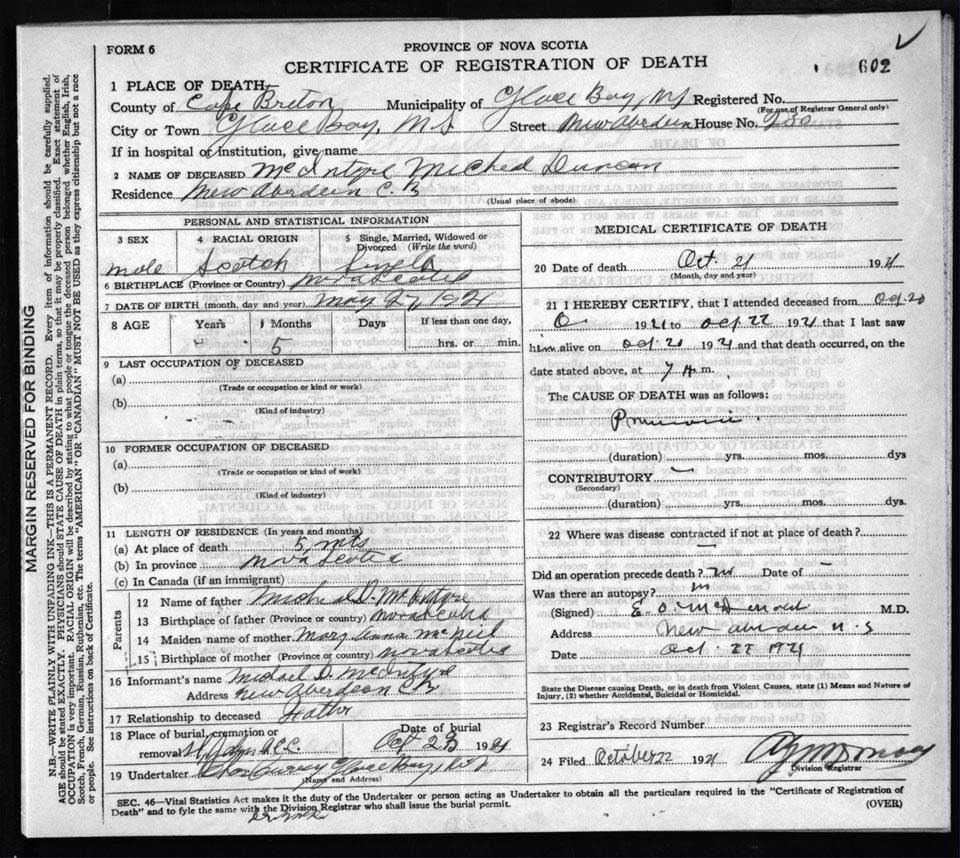 FORM 6
PROVINCE OF NOVA SCOTIA
CERTIFICATE OF REGISTRATION OF DEATH
602
1 PLACE OF DEATH
County of Cape Breton Municipality of Glace Bay, NS Registered No.
(For use of Registrar General only)
City or Town Glace Bay, N.S Street New Aberdeen House No.
If in hospital of institution, give name
2 NAME OF DECEASED McIntyre Micheal Duncan
Residence New Aberdeen C.B
(Usual place of abode)
PERSONAL AND STATISTICAL INFORMATION
3 SEX 4 RACIAL ORIGIN 5 Single, Married, Widowed or Divorced (Write the word)
male Scotch Single
6 BIRTHPLACE (Province or Country) Nova Scotia
7 DATE OF BIRTH (month, day and year) May 27, 1921
8 AGE Years Months Days If less than one day,
5 hrs. or min.
9 LAST OCCUPATION OF DECEASED
(a)
(Trade or occupation or kind or work)
(b)
(Kind of industry)
10 FORMER OCCUPATION OF DECEASED
(a)
(Trade or occupation or kind of work)
(b)
(Kind of industry)
11 LENGTH OF RESIDENCE (In years and months)
(a) At place of death 5 mts
(b) In province Nova Scotia
(c) In Canada (if an immigrant)
Parents
12 Name of father Micheal D. McIntyre
13 Birthplace of father (Province or country) Nova Scotia
14 Maiden name of mother Mary Anna McNeil
15 Birthplace of mother (Province or country) Nova Scotia
16 Informant's name Michael D. McIntyre
Address New Aberdeen CB
17 Relationship to deceased Father
18 Place of burial, cremation or removal Date of burial
Oct 23 1921
19 Undertaker Glace Bay, N.S
(Name and Address)
MEDICAL CERTIFICATE OF DEATH
20 Date of death Oct. 21 1921
(Month, day and year)
21 I HEREBY CERTIFY, that I attended deceased from Oct. 20
1921 to Oct 22 1921 that I last saw
him alive on Oct. 21 1921 and that death occurred, on the
date stated above, at 7 A.m.
The CAUSE OF DEATH was as follows:
Pneumonia
(duration) yrs. mos. dys
CONTRIBUTORY
(Secondary)
(duration) yrs. mos. dys.
22 Where was disease contracted if not at place of death?
Did an operation precede death? no Date of –
Was there an autopsy? no
(Signed) E. O. McDonald M.D.
Address New Aberdeen N.S
Date Oct. 22 1921
State the Disease causing Death, or in death from Violent Causes, state (1) Means and Nature of
Injury, (2) whether Accidental, Suicidal or Homicidal.
23 Registrar's Record Number
24 Filed October 22 1921
Division Registrar
SEC. 46—Vital Statistics Act makes it the duty of the Undertaker or person acting as Undertaker to obtain all the particulars required in the "Certificate of Registration of
Death" and to fyle the same with the Division Registrar who shall issue the burial permit.
(OVER)
MARGIN RESERVED FOR BINDING
N.B.—WRITE PLAINLY WITH UNFADING INK—THIS IS A PERMANENT RECORD. Every item of information should be carefully supplied.
AGE should be stated EXACTLY. PHYSICIANS should STATE CAUSE OF DEATH in plain terms, so that it may be properly classified. Exact statement of
OCCUPATION is very important. RACIAL ORIGIN will be described by stating to what people or tongue the deceased person belonged whether English, Irish,
Scotch, French, German, Russian, Ruthenian, etc. The terms "AMERICAN" OR "CANADIAN" MUST NOT BE USED as they express citizenship but not a race
or people. See instructions on back of Certificate.